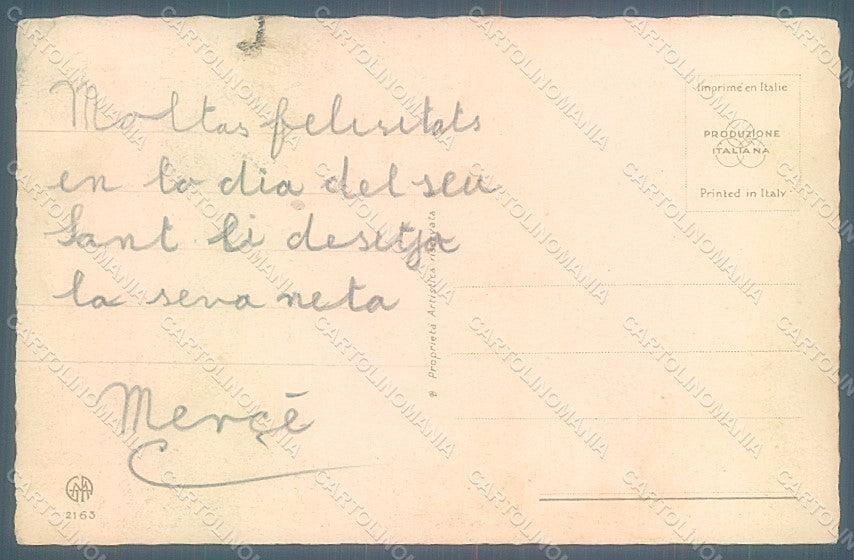 Moltas felisitats
en lo dia del seu
Sant li desitja
la seva neta
Mercé
2163
Proprietá Artistica riservata
Imprimé en Italie
PRODUZIONE
ITALIANA
Printed in Italy
CARTOLINOMANIA